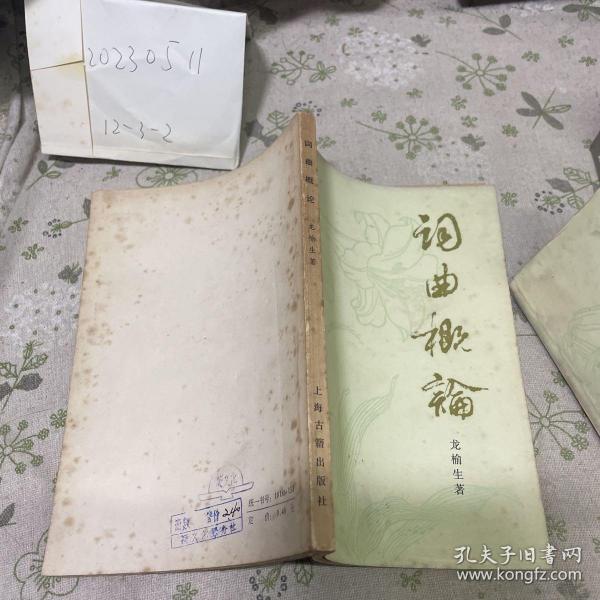 20230511
12-3-2
词曲概论
龙榆生著
上海古籍出版社
词曲概論
龙榆生著
统一书号：
定价：0.48元
240
孔夫子旧书网
www.kongfz.com